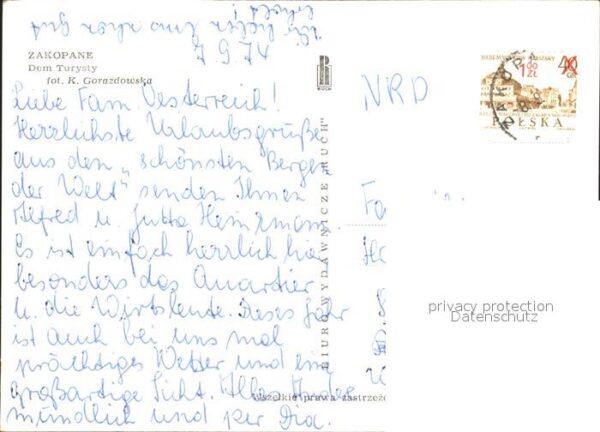 7.9.74
ZAKOPANE
Dom Turysty
fot. K. Gorazdowska
Liebe Fam. Oesterreich!
Herzlichste Urlaubsgrüße
aus den „schönsten Bergen
der Welt" senden Ihnen
Alfred u. Jutta Heinzmann.
Es ist einfach herrlich hier
besonders das Quartier
u. die Wirtsleute. Dieses Jahr
ist auch bei uns mal
prächtiges Wetter und eine
großartige Sicht. Alles Andere
mündlich und per Dia.
BIURO WYDAWNICZE „RUCH"
Wszelkie prawa zastrzeżo
NRD
1 do
ZŁ
40
POLSKA
Fa
privacy protection
Datenschutz